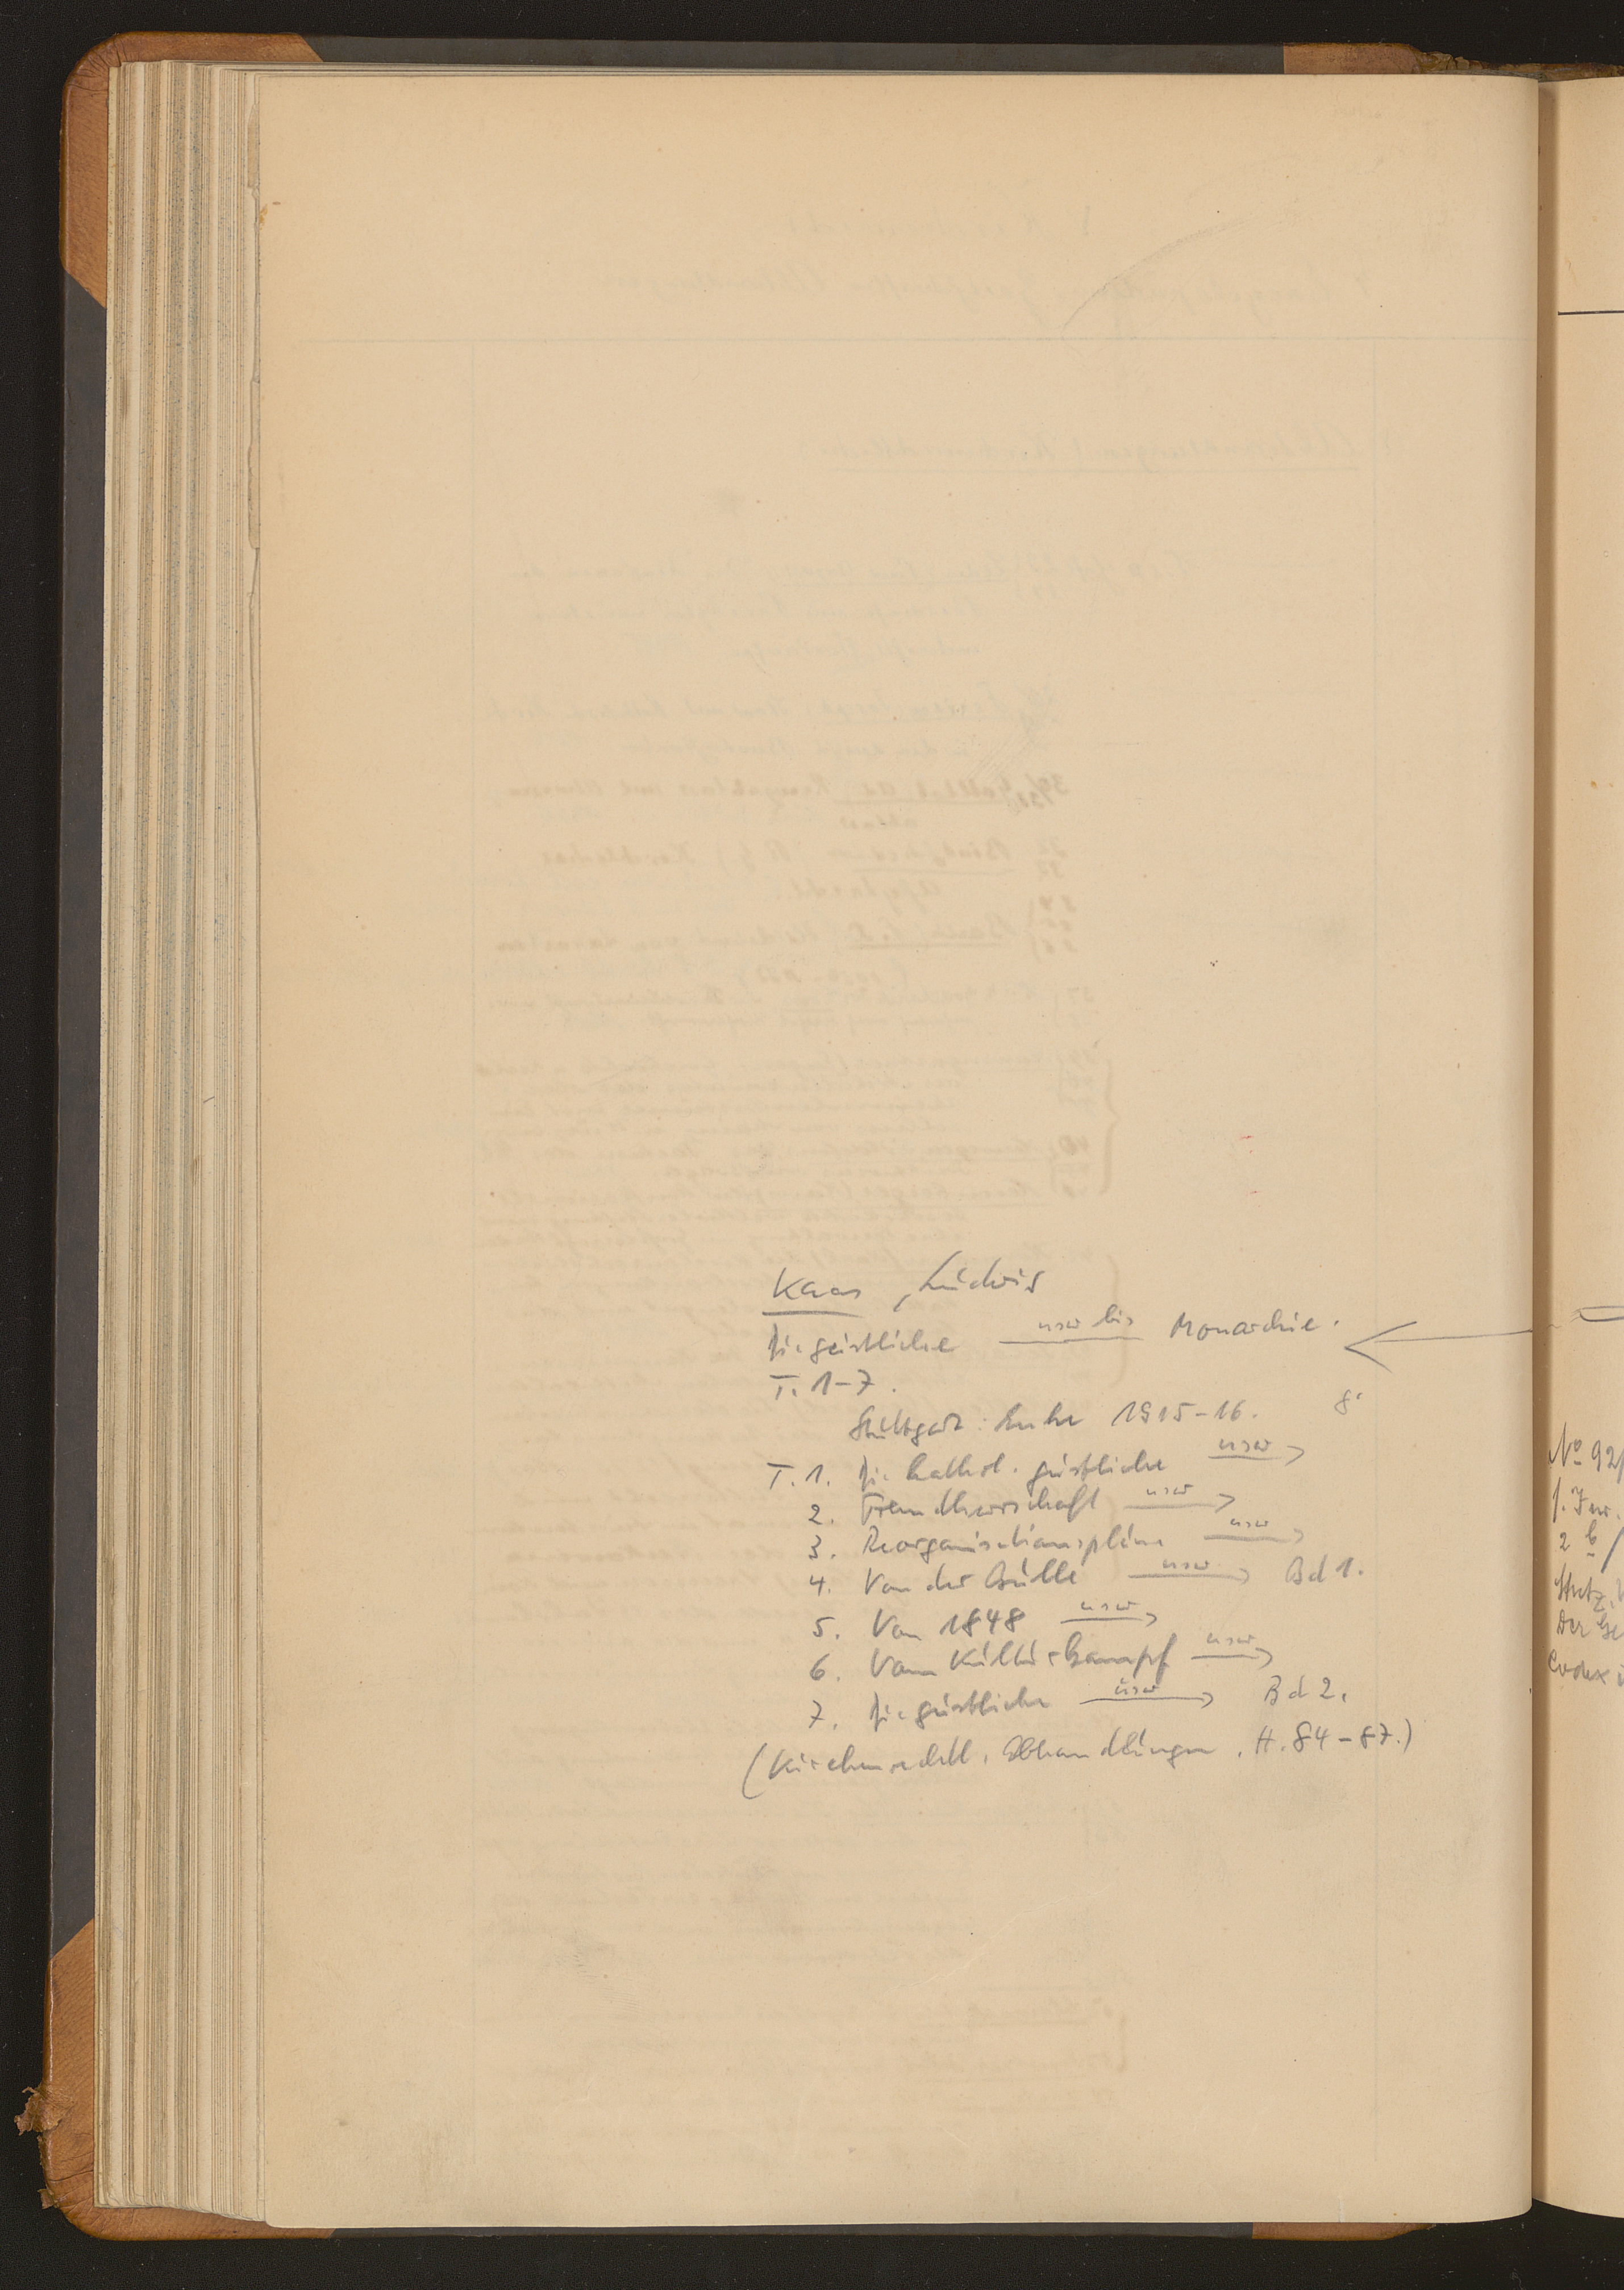 Kaas, Ludwig
Die geistliche usw bis Monarchie.
T. 1-7.
Stuttgart: Enke 1915-16. 8°
T. 1. Die kathol. geistliche usw →
2. Fremdherrschaft usw →
3. Reorganisationspläne usw →
4. Von der Bulle usw → Bd 1.
5. Von 1848 usw →
6. Vom Kulturkampf usw →
7. Die geistliche usw → Bd 2.
(Kirchenrechtl. Abhandlungen. H. 84-87.)
№ 92
1. Jur.
2 b
Stutz,
Der Ge
Codex